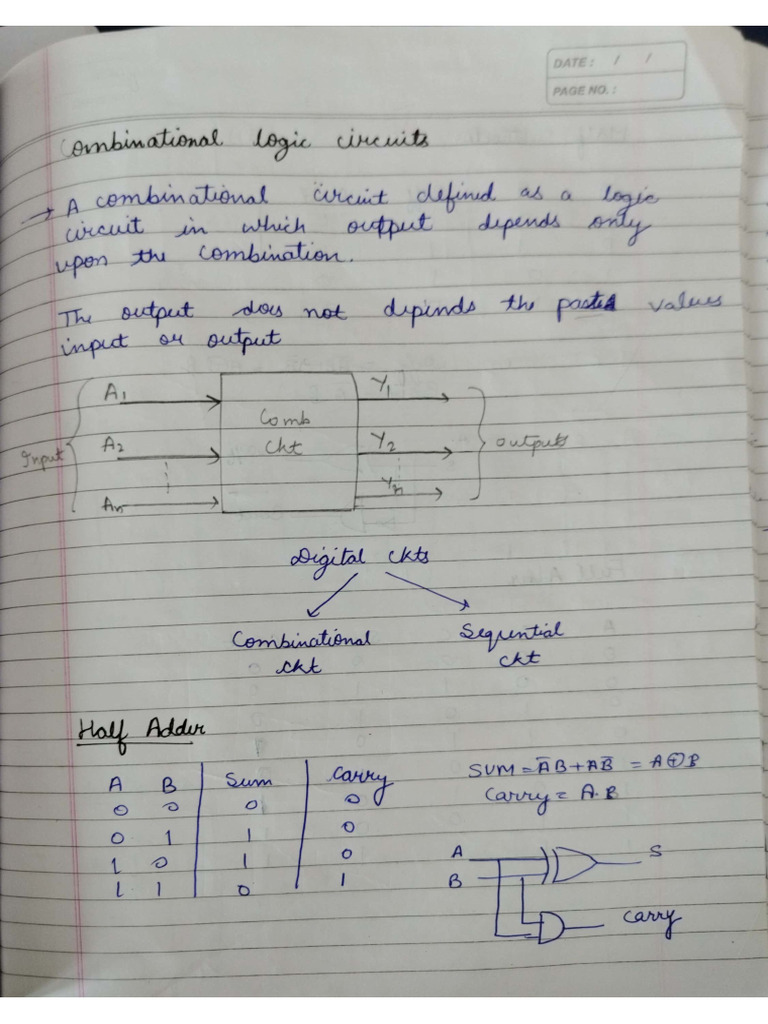 DATE: / /
PAGE NO.:
Combinational logic circuits
→ A combinational circuit defined as a logic
circuit in which output depends only
upon the combination.
The output does not depends the pasted values
input or output
Input
A1
A2
An
Comb
Ckt
Y1
Y2
Yn
outputs
Digital ckts
Combinational
ckt
Sequential
ckt
Half Adder
A B Sum Carry
0 0 0 0
0 1 1 0
1 0 1 0
1 1 0 1
SUM = A̅B + AB̅ = A⊕B
Carry = A.B
A
B
S
Carry